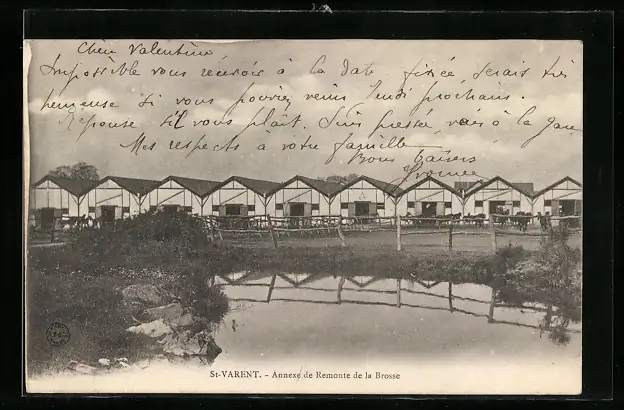 Chère Valentine
Impossible vous recevoir à la date fixée, serais très
heureuse si vous pouviez venir Jeudi prochain.
Réponse s'il vous plait. Suis pressée, vais à la gare
Mes respects à votre famille
Bons baisers
Yvonne
St-VARENT. - Annexe de Remonte de la Brosse